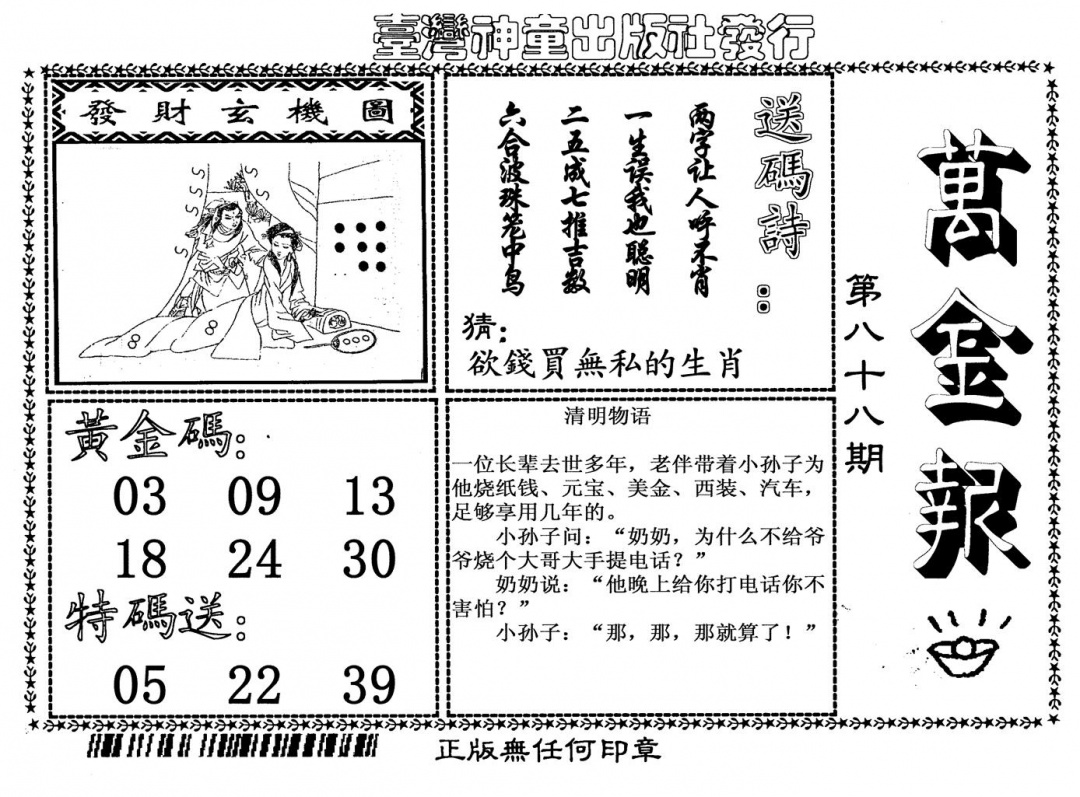 臺灣神童出版社發行
萬金報
第八十八期
發財玄機圖
送碼詩：
两字让人呼不肖
一生误我也聪明
二五成七推吉数
六合波珠笼中鸟
猜：
欲錢買無私的生肖
黃金碼：
03 09 13
18 24 30
特碼送：
05 22 39
清明物语
一位长辈去世多年，老伴带着小孙子为
他烧纸钱、元宝、美金、西装、汽车，
足够享用几年的。
小孙子问：“奶奶，为什么不给爷
爷烧个大哥大手提电话？”
奶奶说：“他晚上给你打电话你不
害怕？”
小孙子：“那，那，那就算了！”
正版無任何印章